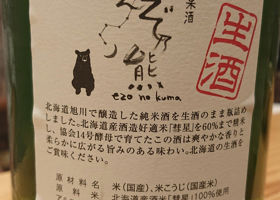 米酒
えぞの熊
ezo no kuma
生酒
北海道旭川で醸造した純米酒を生酒のまま瓶詰め
しました。北海道産酒造好適米「彗星」を60%まで精米
し、協会14号酵母で育てたこの酒は爽やかな香りと
柔らかに広がる旨みのある味わい。北海道の生酒を
ご賞味ください。
原材料 米(国産)、米こうじ(国産米)
原料米 北海道産酒米「彗星」100%使用